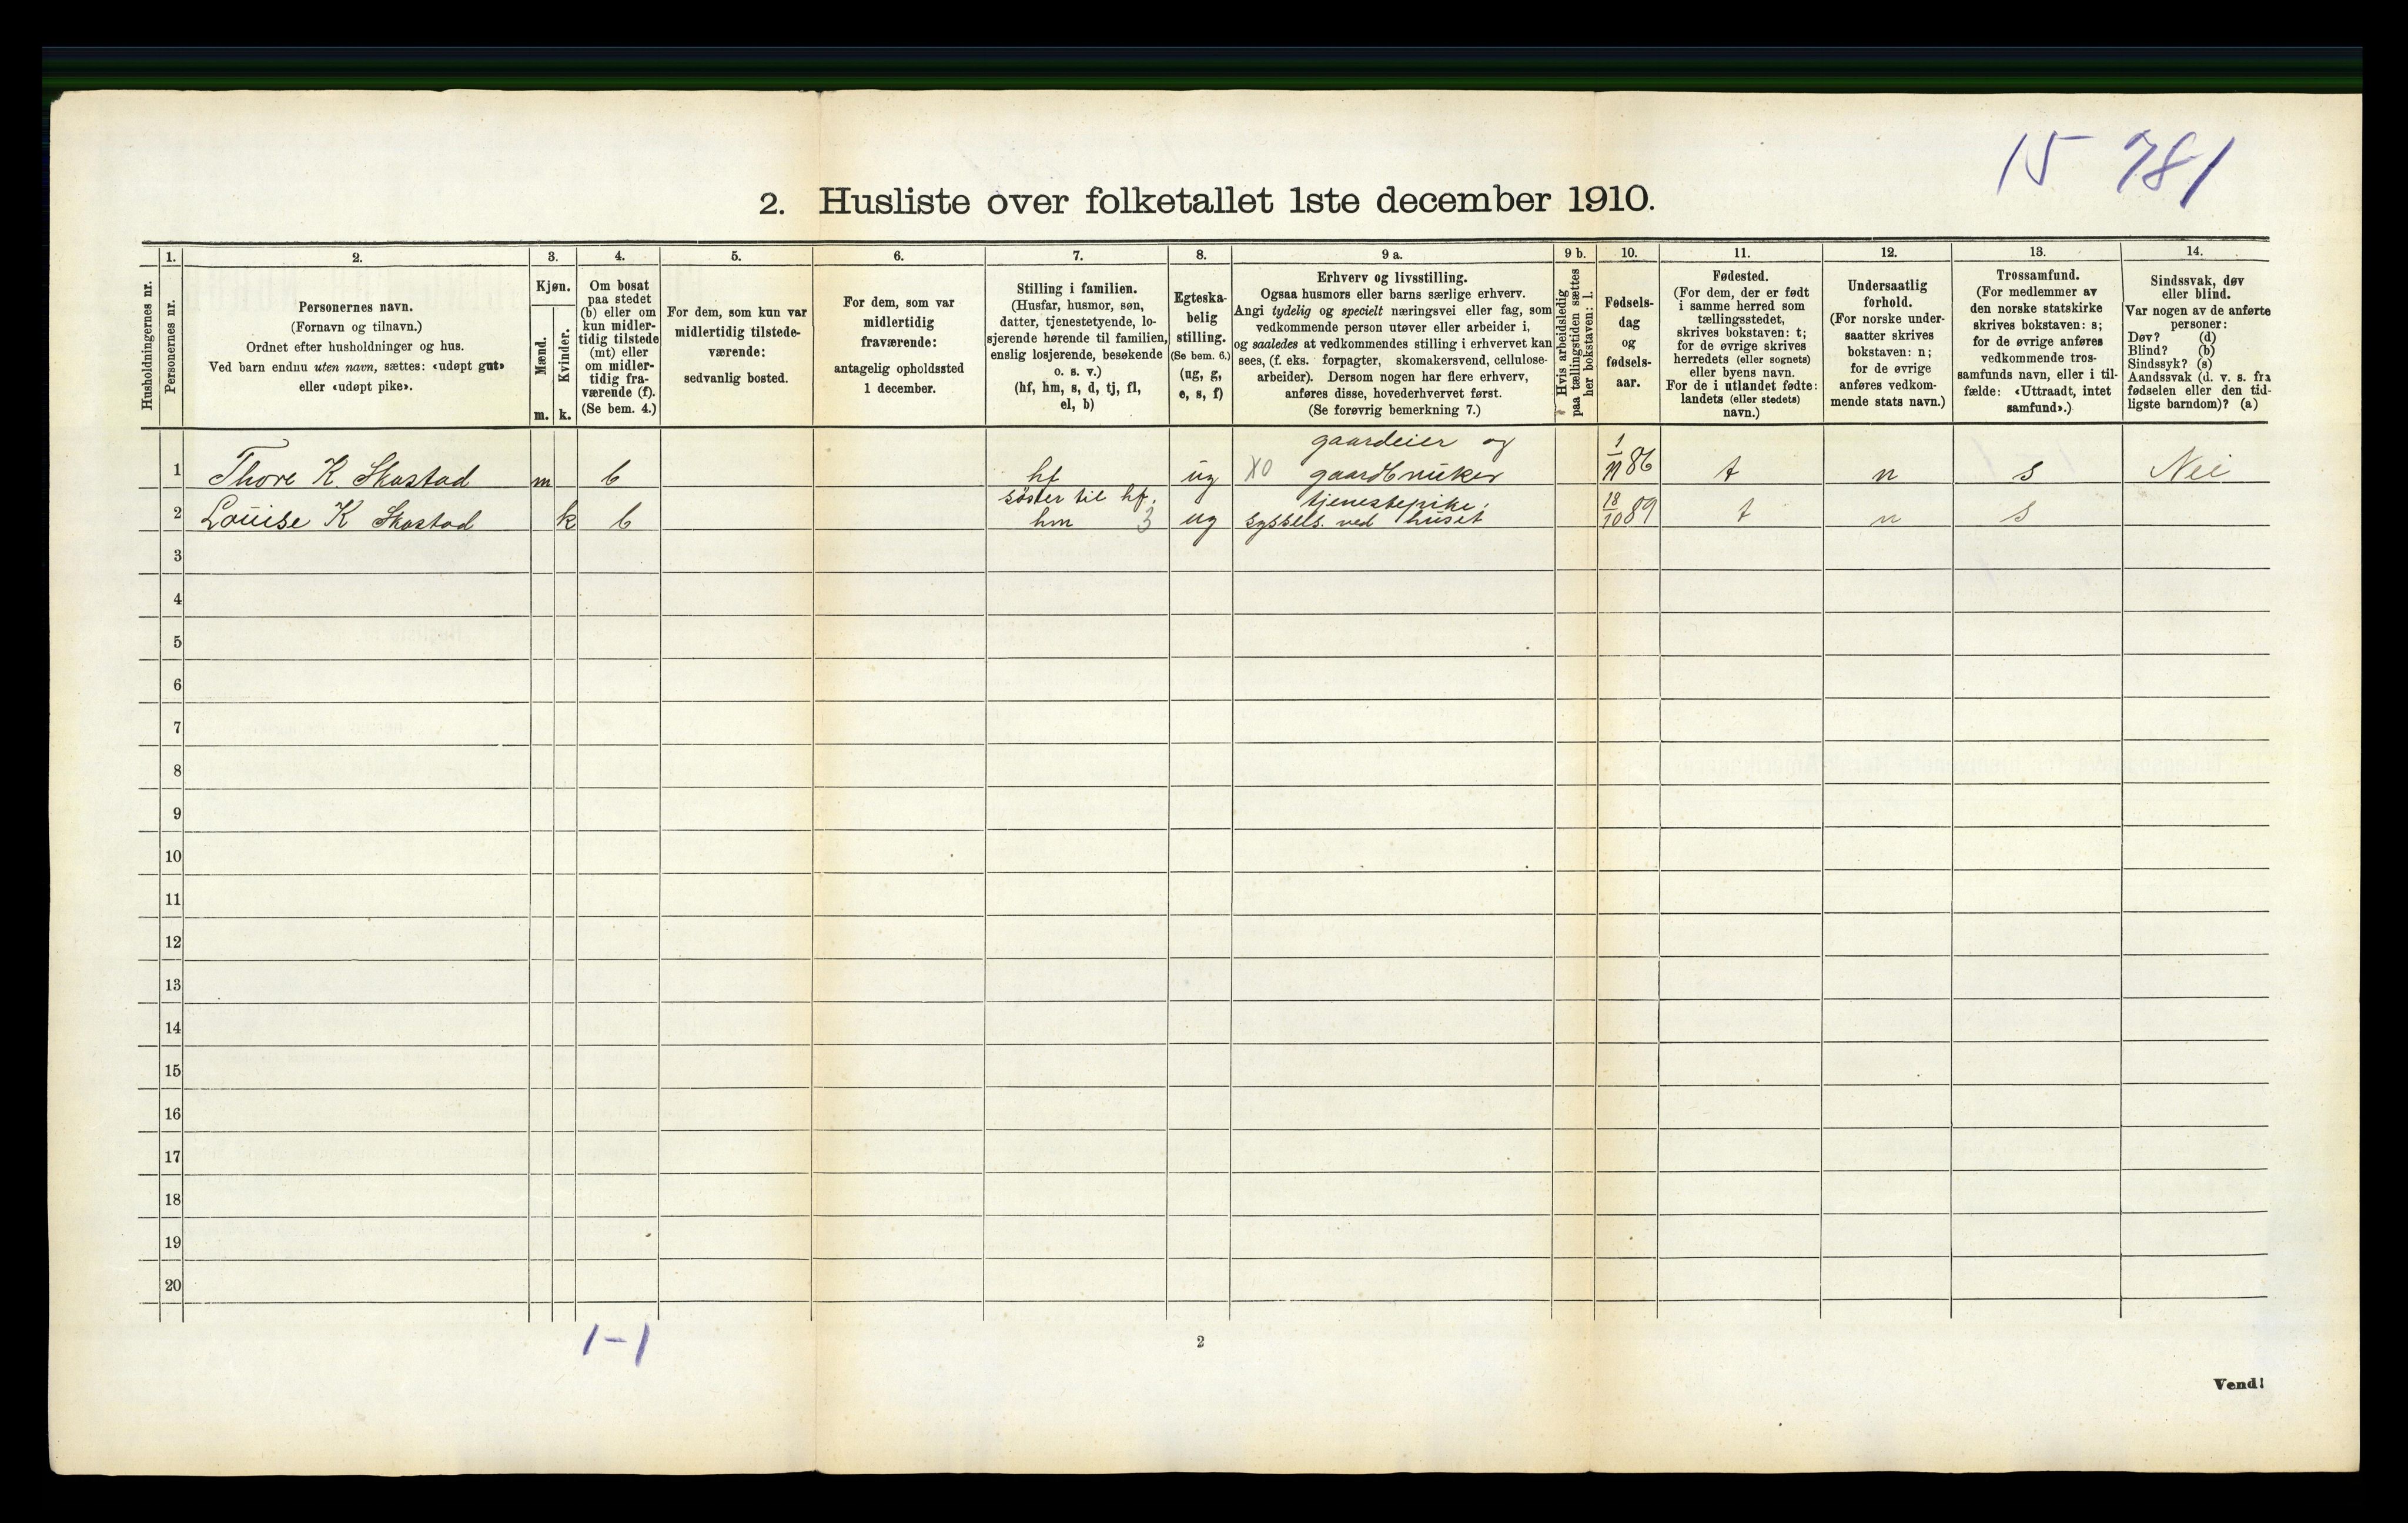 15 781
2. Husliste over folketallet 1ste december 1910.
Husholdningernes nr.
1.
Personernes nr.
2.
Personernes navn.
(Fornavn og tilnavn.)
Ordnet efter husholdninger og hus.
Ved barn endnu uten navn, sættes: «udøpt gut»
eller «udøpt pike».
3.
Kjøn.
Mænd.
m.
Kvinder.
k.
4.
Om bosat
paa stedet
(b) eller om
kun midler-
tidig tilstede
(mt) eller
om midler-
tidig fra-
værende (f).
(Se bem. 4.)
5.
For dem, som kun var
midlertidig tilstede-
værende:
sedvanlig bosted.
6.
For dem, som var
midlertidig
fraværende:
antagelig opholdssted
1 december.
7.
Stilling i familien.
(Husfar, husmor, søn,
datter, tjenestetyende, lo-
sjerende hørende til familien,
enslig losjerende, besøkende
o. s. v.)
(hf, hm, s, d, tj, fl,
el, b)
8.
Egteska-
belig
stilling.
(Se bem. 6.)
(ug, g,
e, s, f)
9 a.
Erhverv og livsstilling.
Ogsaa husmors eller barns særlige erhverv.
Angi tydelig og specielt næringsvei eller fag, som
vedkommende person utøver eller arbeider i,
og saaledes at vedkommendes stilling i erhvervet kan
sees, (f. eks. forpagter, skomakersvend, cellulose-
arbeider). Dersom nogen har flere erhverv,
anføres disse, hovederhvervet først.
(Se forøvrig bemerkning 7.)
9 b.
Hvis arbeidsledig
paa tællingstiden sættes
her bokstaven: l.
10.
Fødsels-
dag
og
fødsels-
aar.
11.
Fødested.
(For dem, der er født
i samme herred som
tællingsstedet,
skrives bokstaven: t;
for de øvrige skrives
herredets (eller sognets)
eller byens navn.
For de i utlandet fødte:
landets (eller stedets)
navn.)
12.
Undersaatlig
forhold.
(For norske under-
saatter skrives
bokstaven: n;
for de øvrige
anføres vedkom-
mende stats navn.)
13.
Trossamfund.
(For medlemmer av
den norske statskirke
skrives bokstaven: s;
for de øvrige anføres
vedkommende tros-
samfunds navn, eller i til-
fælde: «Uttraadt, intet
samfund».)
14.
Sindssvak, døv
eller blind.
Var nogen av de anførte
personer:
Døv? (d)
Blind? (b)
Sindssyk? (s)
Aandssvak (d. v. s. fra
fødselen eller den tid-
ligste barndom)? (a)
gaardeier og
1 Thore K. Skastad m b hf ug X0 gaardbruker 1/11 86 t n s Nei
søster til hf. tjenestepike;
2 Louise K Skastad k b hm 3 ug syssels. ved huset 18/10 89 t n s
3
4
5
6
7
8
9
10
11
12
13
14
15
16
17
18
19
20
1-1
2
Vend!